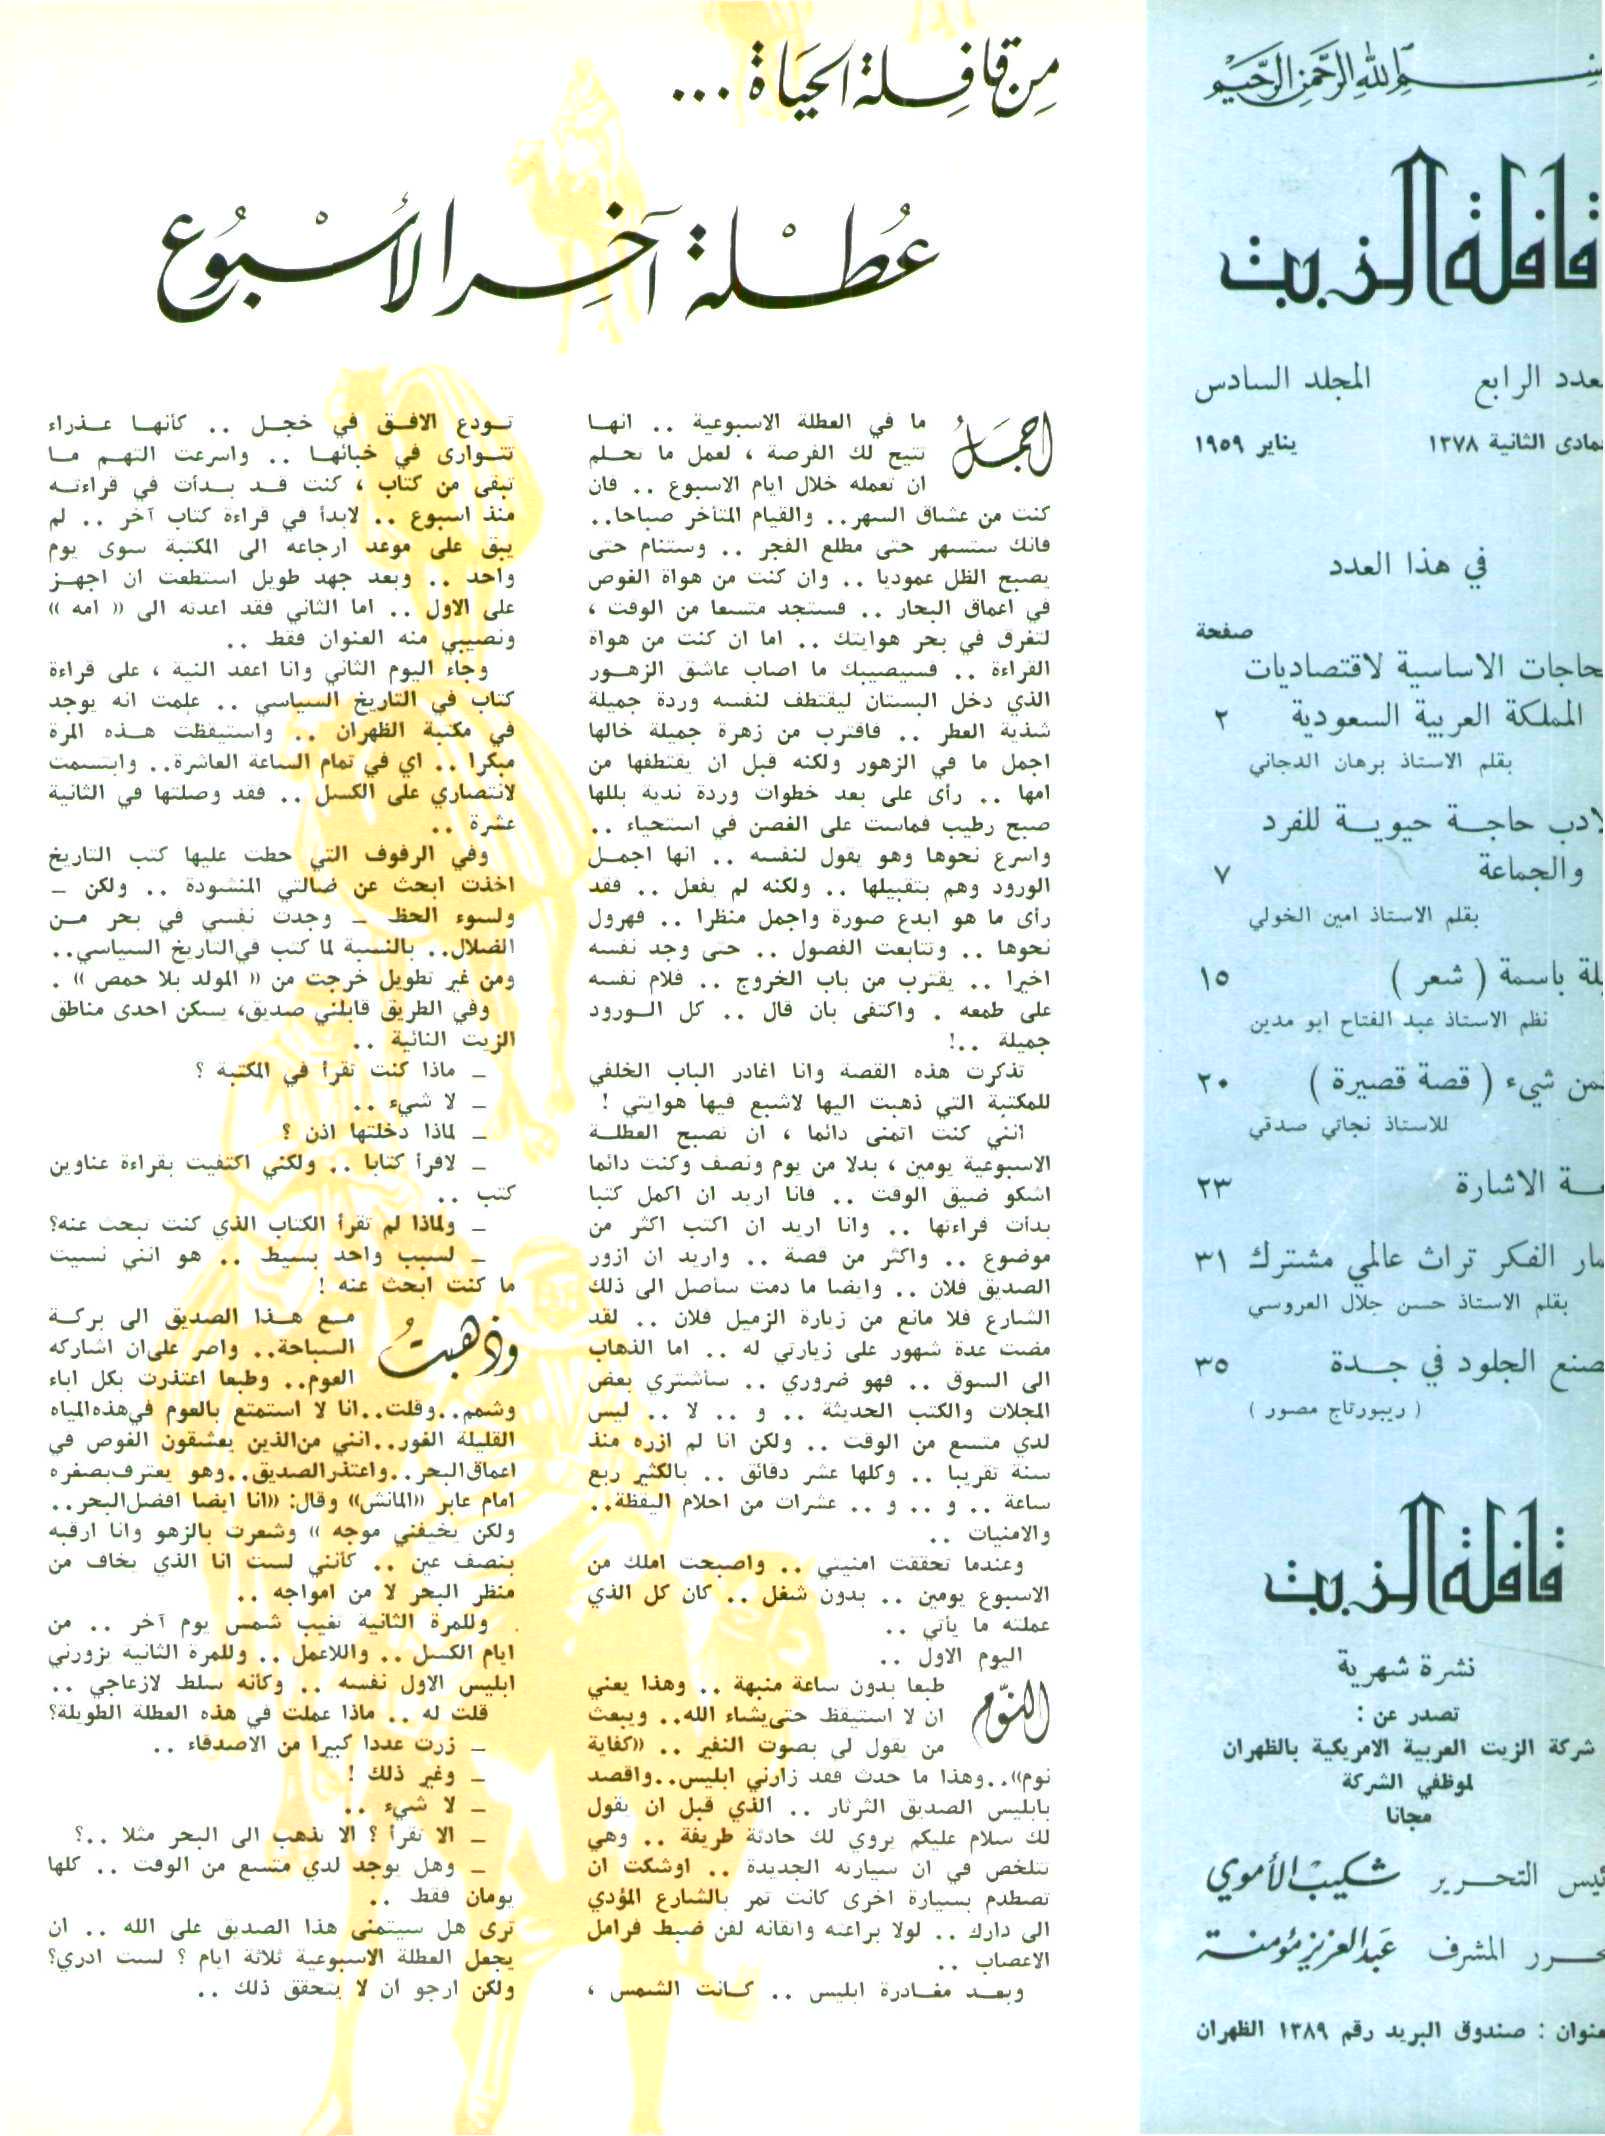 بسم الله الرحمن الرحيم
قافلة الزيت
العدد الرابع المجلد السادس
جمادى الثانية ١٣٧٨ يناير ١٩٥٩
في هذا العدد
صفحة
الحاجات الاساسية لاقتصاديات
المملكة العربية السعودية ٢
بقلم الاستاذ برهان الدجاني
الادب حاجة حيوية للفرد
والجماعة ٧
بقلم الاستاذ امين الخولي
باسمة ( شعر ) ١٥
نظم الاستاذ عبد الفتاح ابو مدين
شيء ( قصة قصيرة ) ٢٠
للاستاذ نجاتي صدقي
الاشارة ٢٣
الفكر تراث عالمي مشترك ٣١
بقلم الاستاذ حسن جلال العروسي
مصنع الجلود في جدة ٣٥
( ريبورتاج مصور )
قافلة الزيت
نشرة شهرية
تصدر عن :
شركة الزيت العربية الامريكية بالظهران
لموظفي الشركة
مجانا
رئيس التحرير شكيب الأموي
المحرر المشرف عبد العزيز مؤمنة
العنوان : صندوق البريد رقم ١٣٨٩ الظهران
من قافلة الحياة ...
عطلة آخر الأسبوع
اجمل ما في العطلة الاسبوعية .. انها
تتيح لك الفرصة ، لعمل ما تحلم
ان تعمله خلال ايام الاسبوع .. فان
كنت من عشاق السهر.. والقيام المتأخر صباحا..
فانك ستسهر حتى مطلع الفجر .. وستنام حتى
يصبح الظل عموديا .. وان كنت من هواة الغوص
في اعماق البحار .. فستجد متسعا من الوقت ،
لتغرق في بحر هوايتك .. اما ان كنت من هواة
القراءة .. فسيصيبك ما اصاب عاشق الزهور
الذي دخل البستان ليقتطف لنفسه وردة جميلة
شذية العطر .. فاقترب من زهرة جميلة خالها
اجمل ما في الزهور ولكنه قبل ان يقتطفها من
امها .. رأى على بعد خطوات وردة ندية بللها
صبح رطيب فماست على الغصن في استحياء ..
واسرع نحوها وهو يقول لنفسه .. انها اجمل
الورود وهم بتقبيلها .. ولكنه لم يفعل .. فقد
رأى ما هو ابدع صورة واجمل منظرا .. فهرول
نحوها .. وتتابعت الفصول .. حتى وجد نفسه
اخيرا .. يقترب من باب الخروج .. فلام نفسه
على طمعه . واكتفى بان قال .. كل الورود
جميلة ..!
تذكرت هذه القصة وانا اغادر الباب الخلفي
للمكتبة التي ذهبت اليها لاشبع فيها هوايتي !
انني كنت اتمنى دائما ، ان تصبح العطلة
الاسبوعية يومين ، بدلا من يوم ونصف وكنت دائما
اشكو ضيق الوقت .. فانا اريد ان اكمل كتبا
بدأت قراءتها .. وانا اريد ان اكتب اكثر من
موضوع .. واكثر من قصة .. واريد ان ازور
الصديق فلان .. وايضا ما دمت سأصل الى ذلك
الشارع فلا مانع من زيارة الزميل فلان .. لقد
مضت عدة شهور على زيارتي له .. اما الذهاب
الى السوق .. فهو ضروري .. سأشتري بعض
المجلات والكتب الحديثة .. و .. لا .. ليس
لدي متسع من الوقت .. ولكن انا لم ازره منذ
سنة تقريبا .. وكلها عشر دقائق .. بالكثير ربع
ساعة .. و .. و .. عشرات من احلام اليقظة..
والامنيات ..
وعندما تحققت امنيتي .. واصبحت املك من
الاسبوع يومين .. بدون شغل .. كان كل الذي
عملته ما يأتي ..
اليوم الاول ..
النوم طبعا بدون ساعة منبهة .. وهذا يعني
ان لا استيقظ حتى يشاء الله.. ويبعث
من يقول لي بصوت النفير .. «كفاية
نوم»..وهذا ما حدث فقد زارني ابليس..واقصد
بابليس الصديق الثرثار .. الذي قبل ان يقول
لك سلام عليكم يروي لك حادثة طريفة .. وهي
تتلخص في ان سيارته الجديدة .. اوشكت ان
تصطدم بسيارة اخرى كانت تمر بالشارع المؤدي
الى دارك .. لولا براعته واتقانه لفن ضبط فرامل
الاعصاب ..
وبعد مغادرة ابليس .. كانت الشمس ،
تودع الافق في خجل .. كأنها عذراء
تتوارى في خبائها .. واسرعت التهم ما
تبقى من كتاب ، كنت قد بدأت في قراءته
منذ اسبوع .. لابدأ في قراءة كتاب آخر .. لم
يبق على موعد ارجاعه الى المكتبة سوى يوم
واحد .. وبعد جهد طويل استطعت ان اجهز
على الاول .. اما الثاني فقد اعدته الى « امه »
ونصيبي منه العنوان فقط ..
وجاء اليوم الثاني وانا اعقد النية ، على قراءة
كتاب في التاريخ السياسي .. علمت انه يوجد
في مكتبة الظهران .. واستيقظت هذه المرة
مبكرا .. اي في تمام الساعة العاشرة.. وابتسمت
لانتصاري على الكسل .. فقد وصلتها في الثانية
عشرة ..
وفي الرفوف التي حطت عليها كتب التاريخ
اخذت ابحث عن ضالتي المنشودة .. ولكن –
ولسوء الحظ – وجدت نفسي في بحر من
الضلال.. بالنسبة لما كتب في التاريخ السياسي..
ومن غير تطويل خرجت من « المولد بلا حمص » .
وفي الطريق قابلني صديق، يسكن احدى مناطق
الزيت النائية ..
– ماذا كنت تقرأ في المكتبة ؟
– لا شيء ..
– لماذا دخلتها اذن ؟
– لاقرأ كتابا .. ولكني اكتفيت بقراءة عناوين
كتب ..
– ولماذا لم تقرأ الكتاب الذي كنت تبحث عنه؟
– لسبب واحد بسيط .. هو انني نسيت
ما كنت ابحث عنه !
وذهبت مع هذا الصديق الى بركة
السباحة.. واصر على ان اشاركه
العوم.. وطبعا اعتذرت بكل اباء
وشمم..وقلت..انا لا استمتع بالعوم في هذه المياه
القليلة الغور..انني من الذين يعشقون الغوص في
اعماق البحر..واعتذر الصديق..وهو يعترف بصغره
امام عابر «المانش» وقال: «انا ايضا افضل البحر..
ولكن يخيفني موجه » وشعرت بالزهو وانا ارقبه
بنصف عين .. كأنني لست انا الذي يخاف من
منظر البحر لا من امواجه ..
وللمرة الثانية تغيب شمس يوم آخر .. من
ايام الكسل .. واللاعمل .. وللمرة الثانية يزورني
ابليس الاول نفسه .. وكأنه سلط لازعاجي ..
قلت له .. ماذا عملت في هذه العطلة الطويلة؟
– زرت عددا كبيرا من الاصدقاء ..
– وغير ذلك !
– لا شيء ..
– الا تقرأ ؟ الا تذهب الى البحر مثلا ..؟
– وهل يوجد لدي متسع من الوقت .. كلها
يومان فقط ..
ترى هل سيتمنى هذا الصديق على الله .. ان
يجعل العطلة الاسبوعية ثلاثة ايام ؟ لست ادري؟
ولكن ارجو ان لا يتحقق ذلك ..